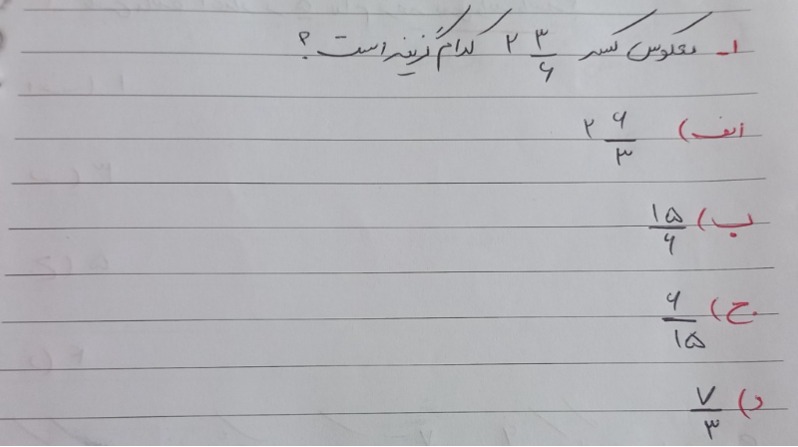 ۱- معکوس کسر ۲ ۳/۶ کدام گزینه است؟
الف) ۲ ۶/۳
ب) ۱۵/۶
ج) ۶/۱۵
د) ۷/۳